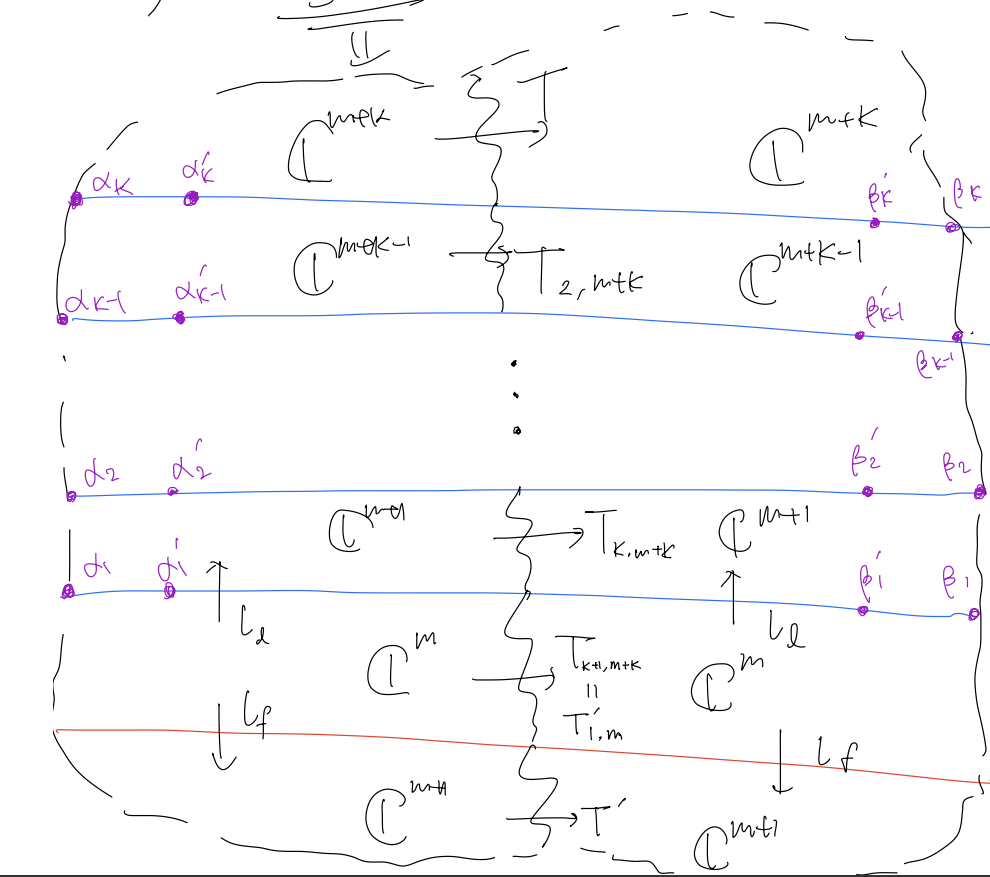 T
ℂ^{m+k} ℂ^{m+k}
α_k α'_k β'_k β_k
ℂ^{m+k-1} T_{2,m+k} ℂ^{m+k-1}
α_{k-1} α'_{k-1} β'_{k-1} β_{k-1}
α_2 α'_2 β'_2 β_2
ℂ^{m+1} T_{k,m+k} ℂ^{m+1}
α_1 α'_1 β'_1 β_1
ι_l ι_l
ℂ^m T_{k+1,m+k} ℂ^m
=
T'_{1,m}
ι_f ι_f
ℂ^{m+1} T' ℂ^{m+1}